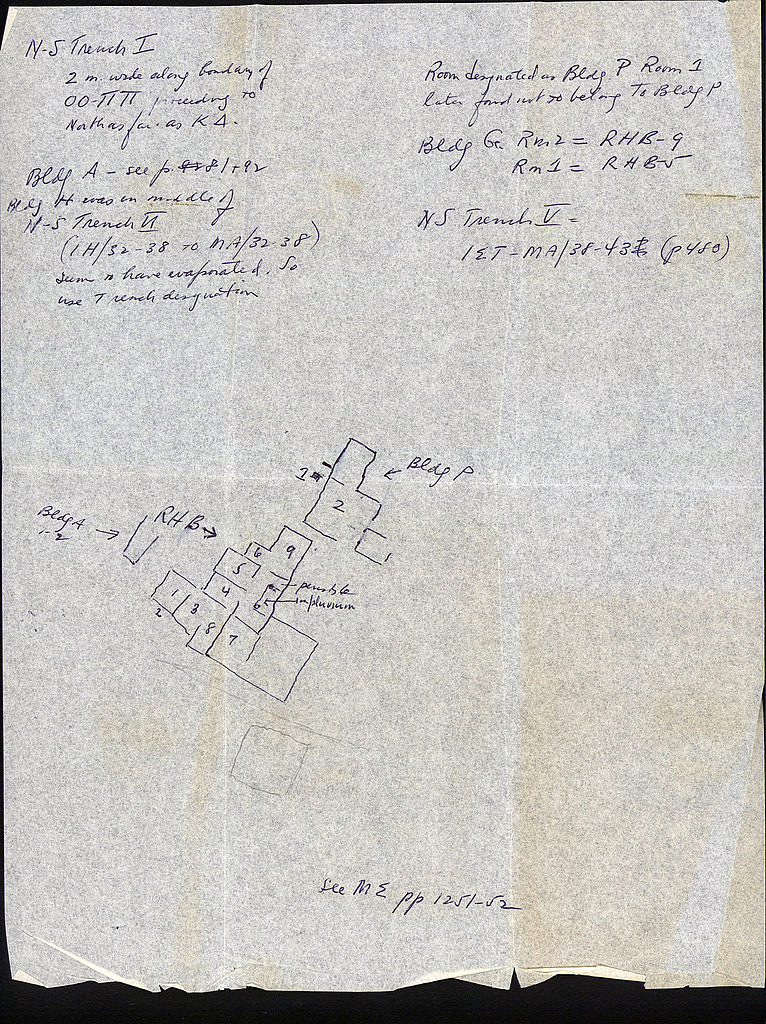 N-S Trench I
2 m. wide along boundary of
OO-ΠΠ proceeding to
North as far as KΔ.
Bldg A - see p. 81+92
Bldg H was in middle of
N-S Trench II
(IH/32-38 to MA/32-38)
seems to have evaporated. So
use Trench designation
Room designated as Bldg P Room 1
later found not to belong to Bldg P
Bldg G Rm 2 = RHB-9
Rm 1 = RHB-5
NS Trench V =
ΙΣΤ-MA/38-43 (p480)
1
← Bldg P
2
Bldg A
1-2
→
RHB →
6
9
5
4
peristyle
impluvium
1
3
2
8
7
See MΣ pp 1251-52